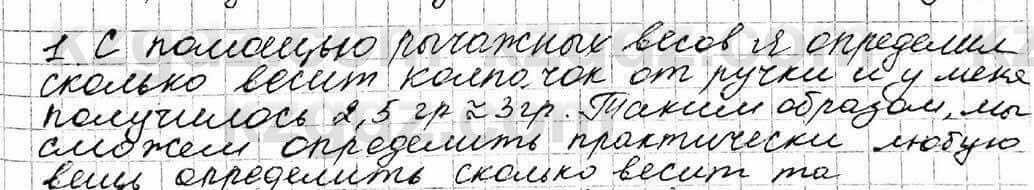 1. С помощью рычажных весов я определил
сколько весит колпачок от ручки и у меня
получилось 2,5 гр ≈ 3гр. Таким образом, мы
сможем определить практически любую
вещь определить сколько весит та